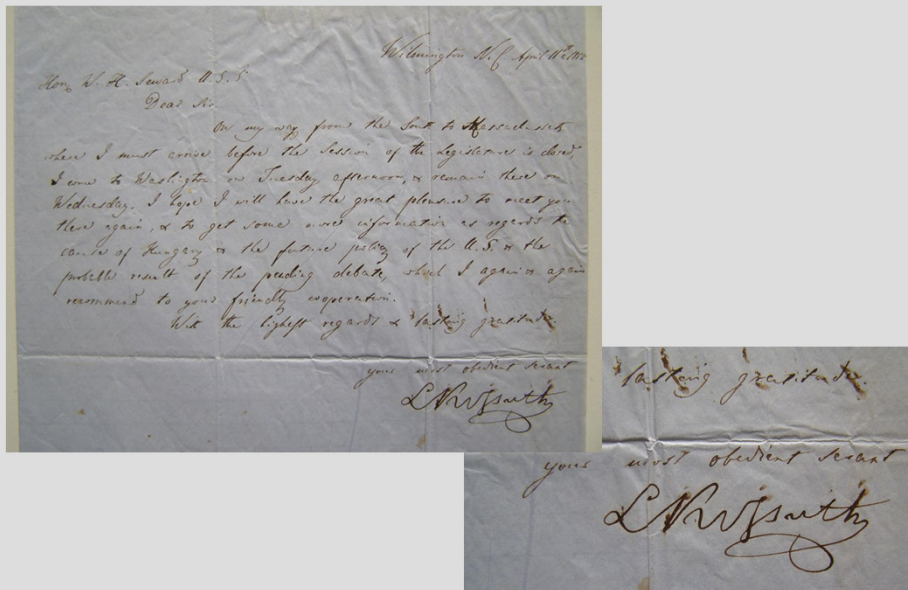 Wilmington N. C. April 11th 1852
Hon. W. H. Seward U. S. S.
Dear Sir
On my way from the South to Massachusetts
where I must arrive before the Session of the Legislature is closed,
I come to Washington on Tuesday afternoon, & remain there on
Wednesday. I hope I will have the great pleasure to meet you
there again, & to get some more information as regards the
cause of Hungary & the future policy of the U. S. & the
probable result of the pending debate, which I again & again
recommend to your friendly cooperation.
With the highest regards & lasting gratitude
yours most obedient servant
L Kossuth
lasting gratitude.
yours most obedient servant
L Kossuth